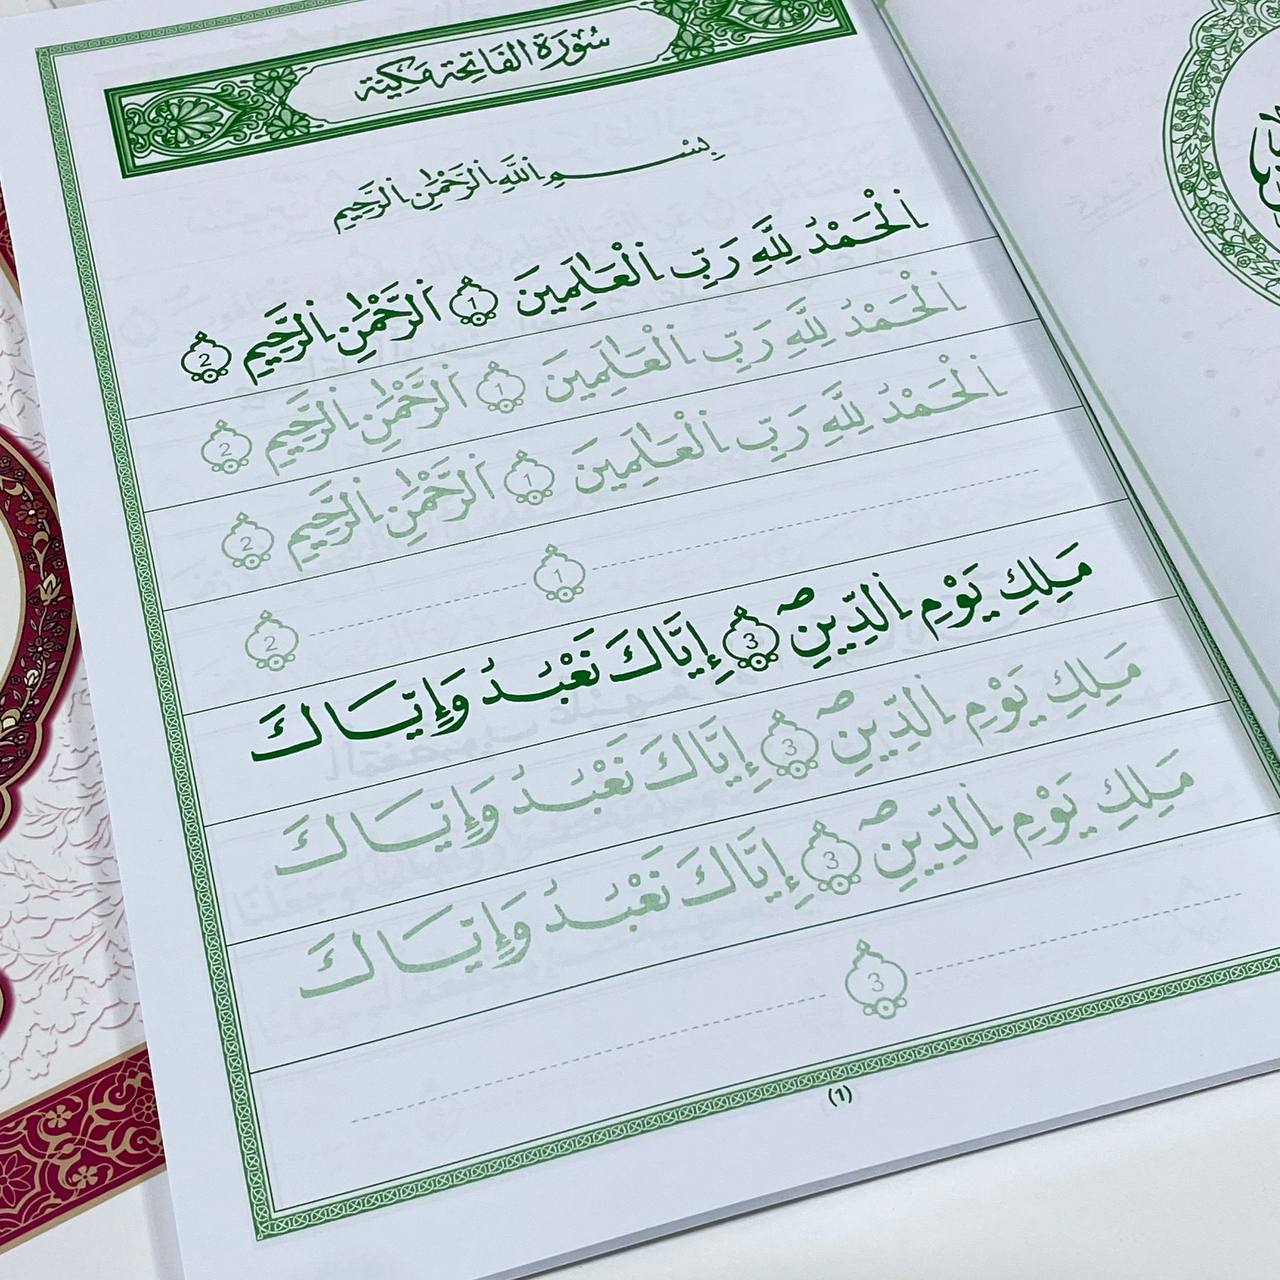 سُورَةُ الْفَاتِحَةِ مَكِّيَّة
بِسْمِ اِ۬للَّهِ اِ۬لرَّحْمَٰنِ اِ۬لرَّحِيمِ
اَ۬لْحَمْدُ لِلَّهِ رَبِّ اِ۬لْعَٰلَمِينَ 1 اَ۬لرَّحْمَٰنِ اِ۬لرَّحِيمِ 2
اَ۬لْحَمْدُ لِلَّهِ رَبِّ اِ۬لْعَٰلَمِينَ 1 اَ۬لرَّحْمَٰنِ اِ۬لرَّحِيمِ 2
اَ۬لْحَمْدُ لِلَّهِ رَبِّ اِ۬لْعَٰلَمِينَ 1 اَ۬لرَّحْمَٰنِ اِ۬لرَّحِيمِ 2
1 2
مَلِكِ يَوْمِ اِ۬لدِّينِۖ 3 إِيَّاكَ نَعْبُدُ وَإِيَّاكَ
مَلِكِ يَوْمِ اِ۬لدِّينِۖ 3 إِيَّاكَ نَعْبُدُ وَإِيَّاكَ
مَلِكِ يَوْمِ اِ۬لدِّينِۖ 3 إِيَّاكَ نَعْبُدُ وَإِيَّاكَ
3
(1)